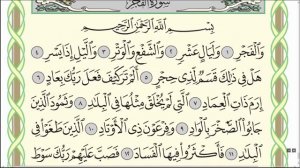 سُورَةُ الفَجْرِ
بِسْمِ اللَّهِ الرَّحْمَٰنِ الرَّحِيمِ
وَالْفَجْرِ ١ وَلَيَالٍ عَشْرٍ ٢ وَالشَّفْعِ وَالْوَتْرِ ٣ وَاللَّيْلِ إِذَا يَسْرِ ٤
هَلْ فِي ذَٰلِكَ قَسَمٌ لِّذِي حِجْرٍ ٥ أَلَمْ تَرَ كَيْفَ فَعَلَ رَبُّكَ بِعَادٍ ٦
إِرَمَ ذَاتِ الْعِمَادِ ٧ الَّتِي لَمْ يُخْلَقْ مِثْلُهَا فِي الْبِلَادِ ٨ وَثَمُودَ الَّذِينَ
جَابُوا الصَّخْرَ بِالْوَادِ ٩ وَفِرْعَوْنَ ذِي الْأَوْتَادِ ١٠ الَّذِينَ طَغَوْا فِي
الْبِلَادِ ١١ فَأَكْثَرُوا فِيهَا الْفَسَادَ ١٢ فَصَبَّ عَلَيْهِمْ رَبُّكَ سَوْطَ